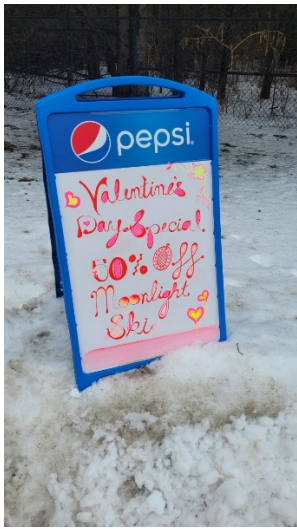 pepsi
Valentine's
Day Special
50% Off
Moonlight
Ski